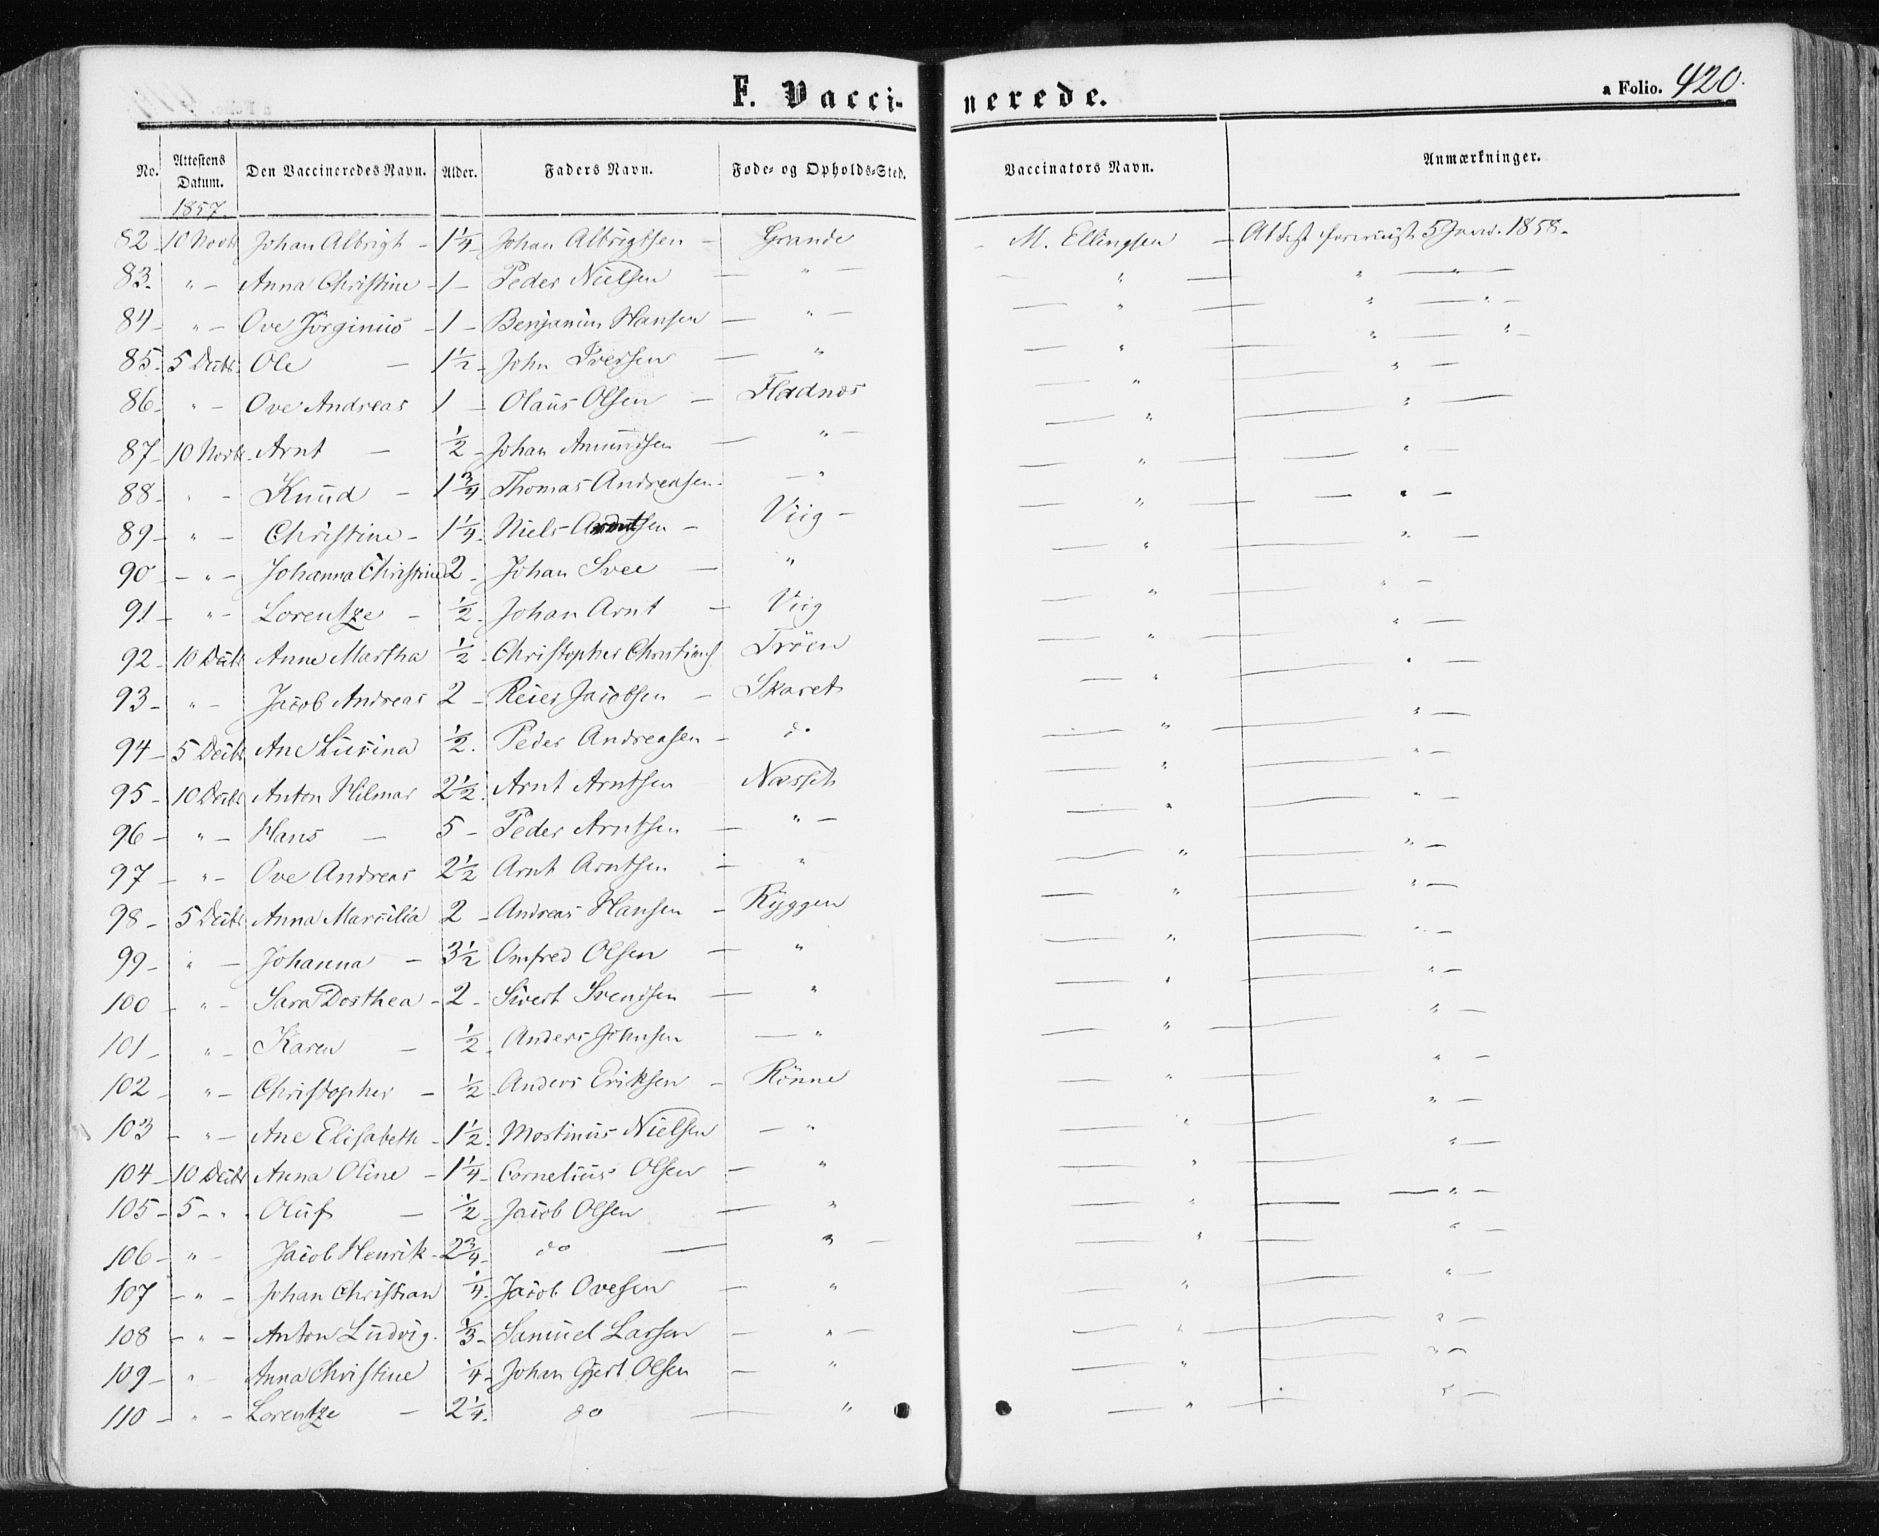 F. Vaccinerede.
a Folio. 420.
No. | Attestens Datum. | Den Vaccineredes Navn. | Alder. | Faders Navn. | Føde- og Opholds-Sted. | Vaccinators Navn. | Anmærkninger.
1857.
82 - 10 Novbr Johan Albrigt - 1 1/4 - Johan Albrigtsen - Grande - M. Ellingsen - Attest 5 Janv. 1858 -
83 - " - Anna Christine - 1 - Peder Nielsen - " - " - " -
84 - " - Ove Jörginus - 1 - Benjamin Hansen - " - " - " -
85 - 5 Decbr. Ole - 1 1/2 - John Iversen - " - " - " -
86 - " - Ove Andreas 1 - Olaus Olsen - Fladnæs - " - " -
87 - 10 Novbr Arnt - 1/2 - Johan Amundsen - " - " - " -
88 - " - Knud - 1 3/4 - Thomas Andreasen - " - " - " -
89 - " - Christine - 1 1/4 - Niels Arntsen - Viig - " - " -
90 - " - Johanna Christine 2 - Johan Svee - " - " - " -
91 - " - Lorentze - 1/2 - Johan Arnt - Viig - " - " -
92 - 10 Decbr Anne Martha 1/2 - Christopher Tröen - " - " -
93 - " - Jacob Andreas 2 - Reier Jacobsen - Skaret - " - " -
94 - 5 Decbr Ane Lucina 1/2 - Peder Andreasen - do - " - " -
95 - 10 Decbr Anton Hilmar 2 1/2 - Arnt Arntsen Næsset - " - " -
96 - " - Hans - 5 - Peder Arntsen - " - " - " -
97 - " - Ove Andreas 2 1/2 Arnt Arntsen - " - " - " -
98 - 5 Decbr Anna Marcilia 2 - Andreas Hansen - Ryggen - " - " -
99 - " - Johanna - 3 1/2 Omfred Olsen - " - " - " -
100 " - Sara Dorthea - 2 - Sivert Svendsen - " - " - " -
101 - " - Karen - 1/2 - Anders Johnsen - " - " - " -
102 - " - Christopher - 1/2 - Anders Eriksen - Rönne - " - " -
103 - " - Ane Elisabeth - 1 1/2 - Mortinus Nielsen - " - " - " -
104 - 10 Decbr Anna Oline - 1 1/4 - Cornelius Olsen - " - " - " -
105 - 5 - " - Oluf - 1/2 - Jacob Olsen - " - " - " -
106 - " - Jacob Henrik - 2 3/4 - do - " - " - " -
107 - " - Johan Christian 1/4 - Jacob Ovesen - " - " - " -
108 - " - Anton Ludvig. 1/3 - Samuel Larsen - " - " - " -
109 - " - Anna Christine 1/4 - Johan Gjert Olsen - " - " - " -
110 - " - Lorentze - 2 1/4 - do - " - " - " -